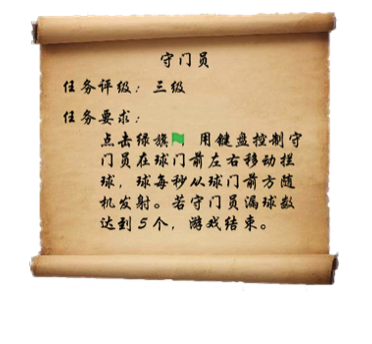 守门员
任务评级：三级
任务要求：
点击绿旗 用键盘控制守
门员在球门前左右移动拦
球，球每秒从球门前方随
机发射。若守门员漏球数
达到5个，游戏结束。